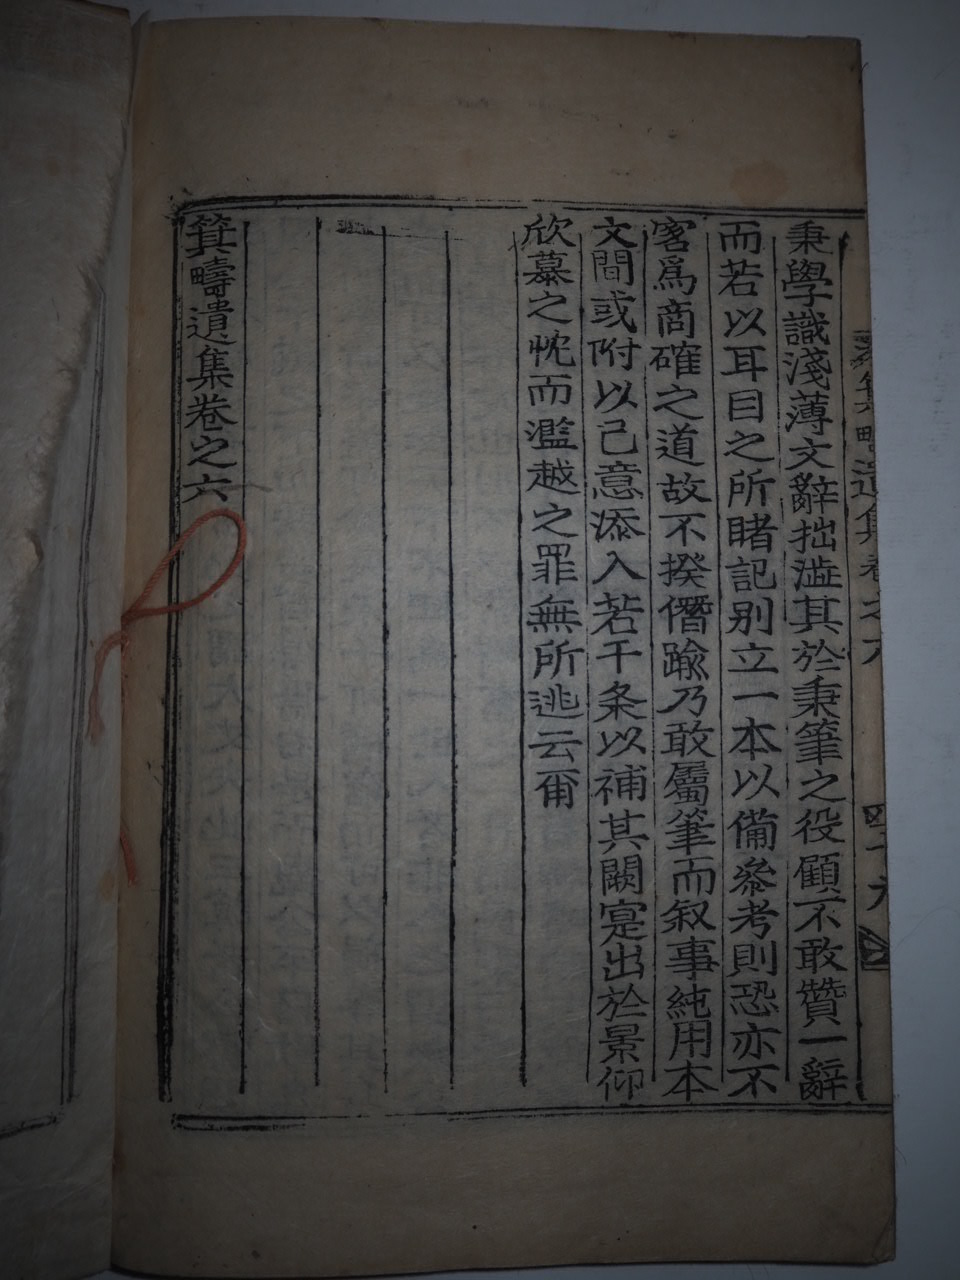 秉學識淺薄文辭拙澁其於秉筆之役顧不敢贊一辭
而若以耳目之所睹記別立一本以備叅考則恐亦不
害爲商確之道故不揆僭踰乃敢屬筆而叙事純用本
文間或附以己意添入若干条以補其闕寔出於景仰
欣慕之忱而濫越之罪無所逃云爾
箕疇遺集卷之六